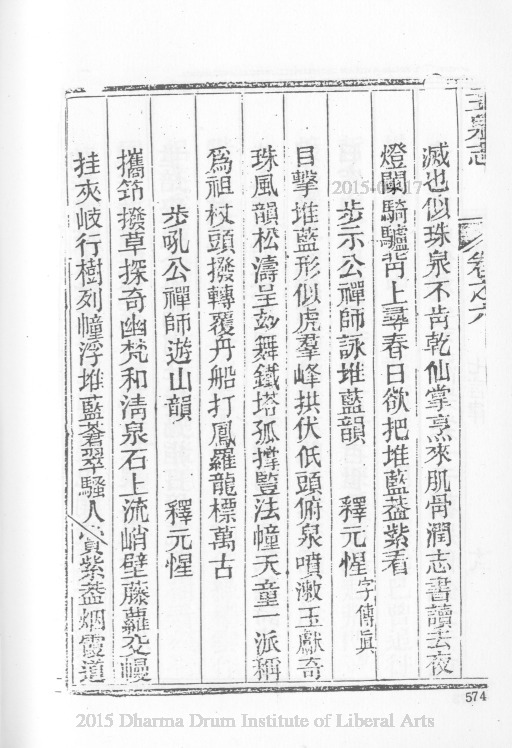 玉泉志
卷之六
滅也似珠泉不啻乾仙掌烹來肌骨潤志書讀去夜
燈闌騎驢背上尋春日欲把堆藍蓋紫看
步示公禪師詠堆藍韻 釋元惺字傳眞
目擊堆藍形似虎羣峰拱伏低頭俯泉噴漱玉獻奇
珠風韻松濤呈妙舞鐵塔孤撐豎法幢天童一派稱
爲祖杖頭撥轉覆舟船打鳳羅龍標萬古
步吼公禪師遊山韻 釋元惺
攜筇撥草探奇幽梵和淸泉石上流峭壁藤蘿交幔
挂夾岐行樹列幢浮堆藍蒼翠騷人賞紫蓋烟霞道
574
2015 Dharma Drum Institute of Liberal Arts